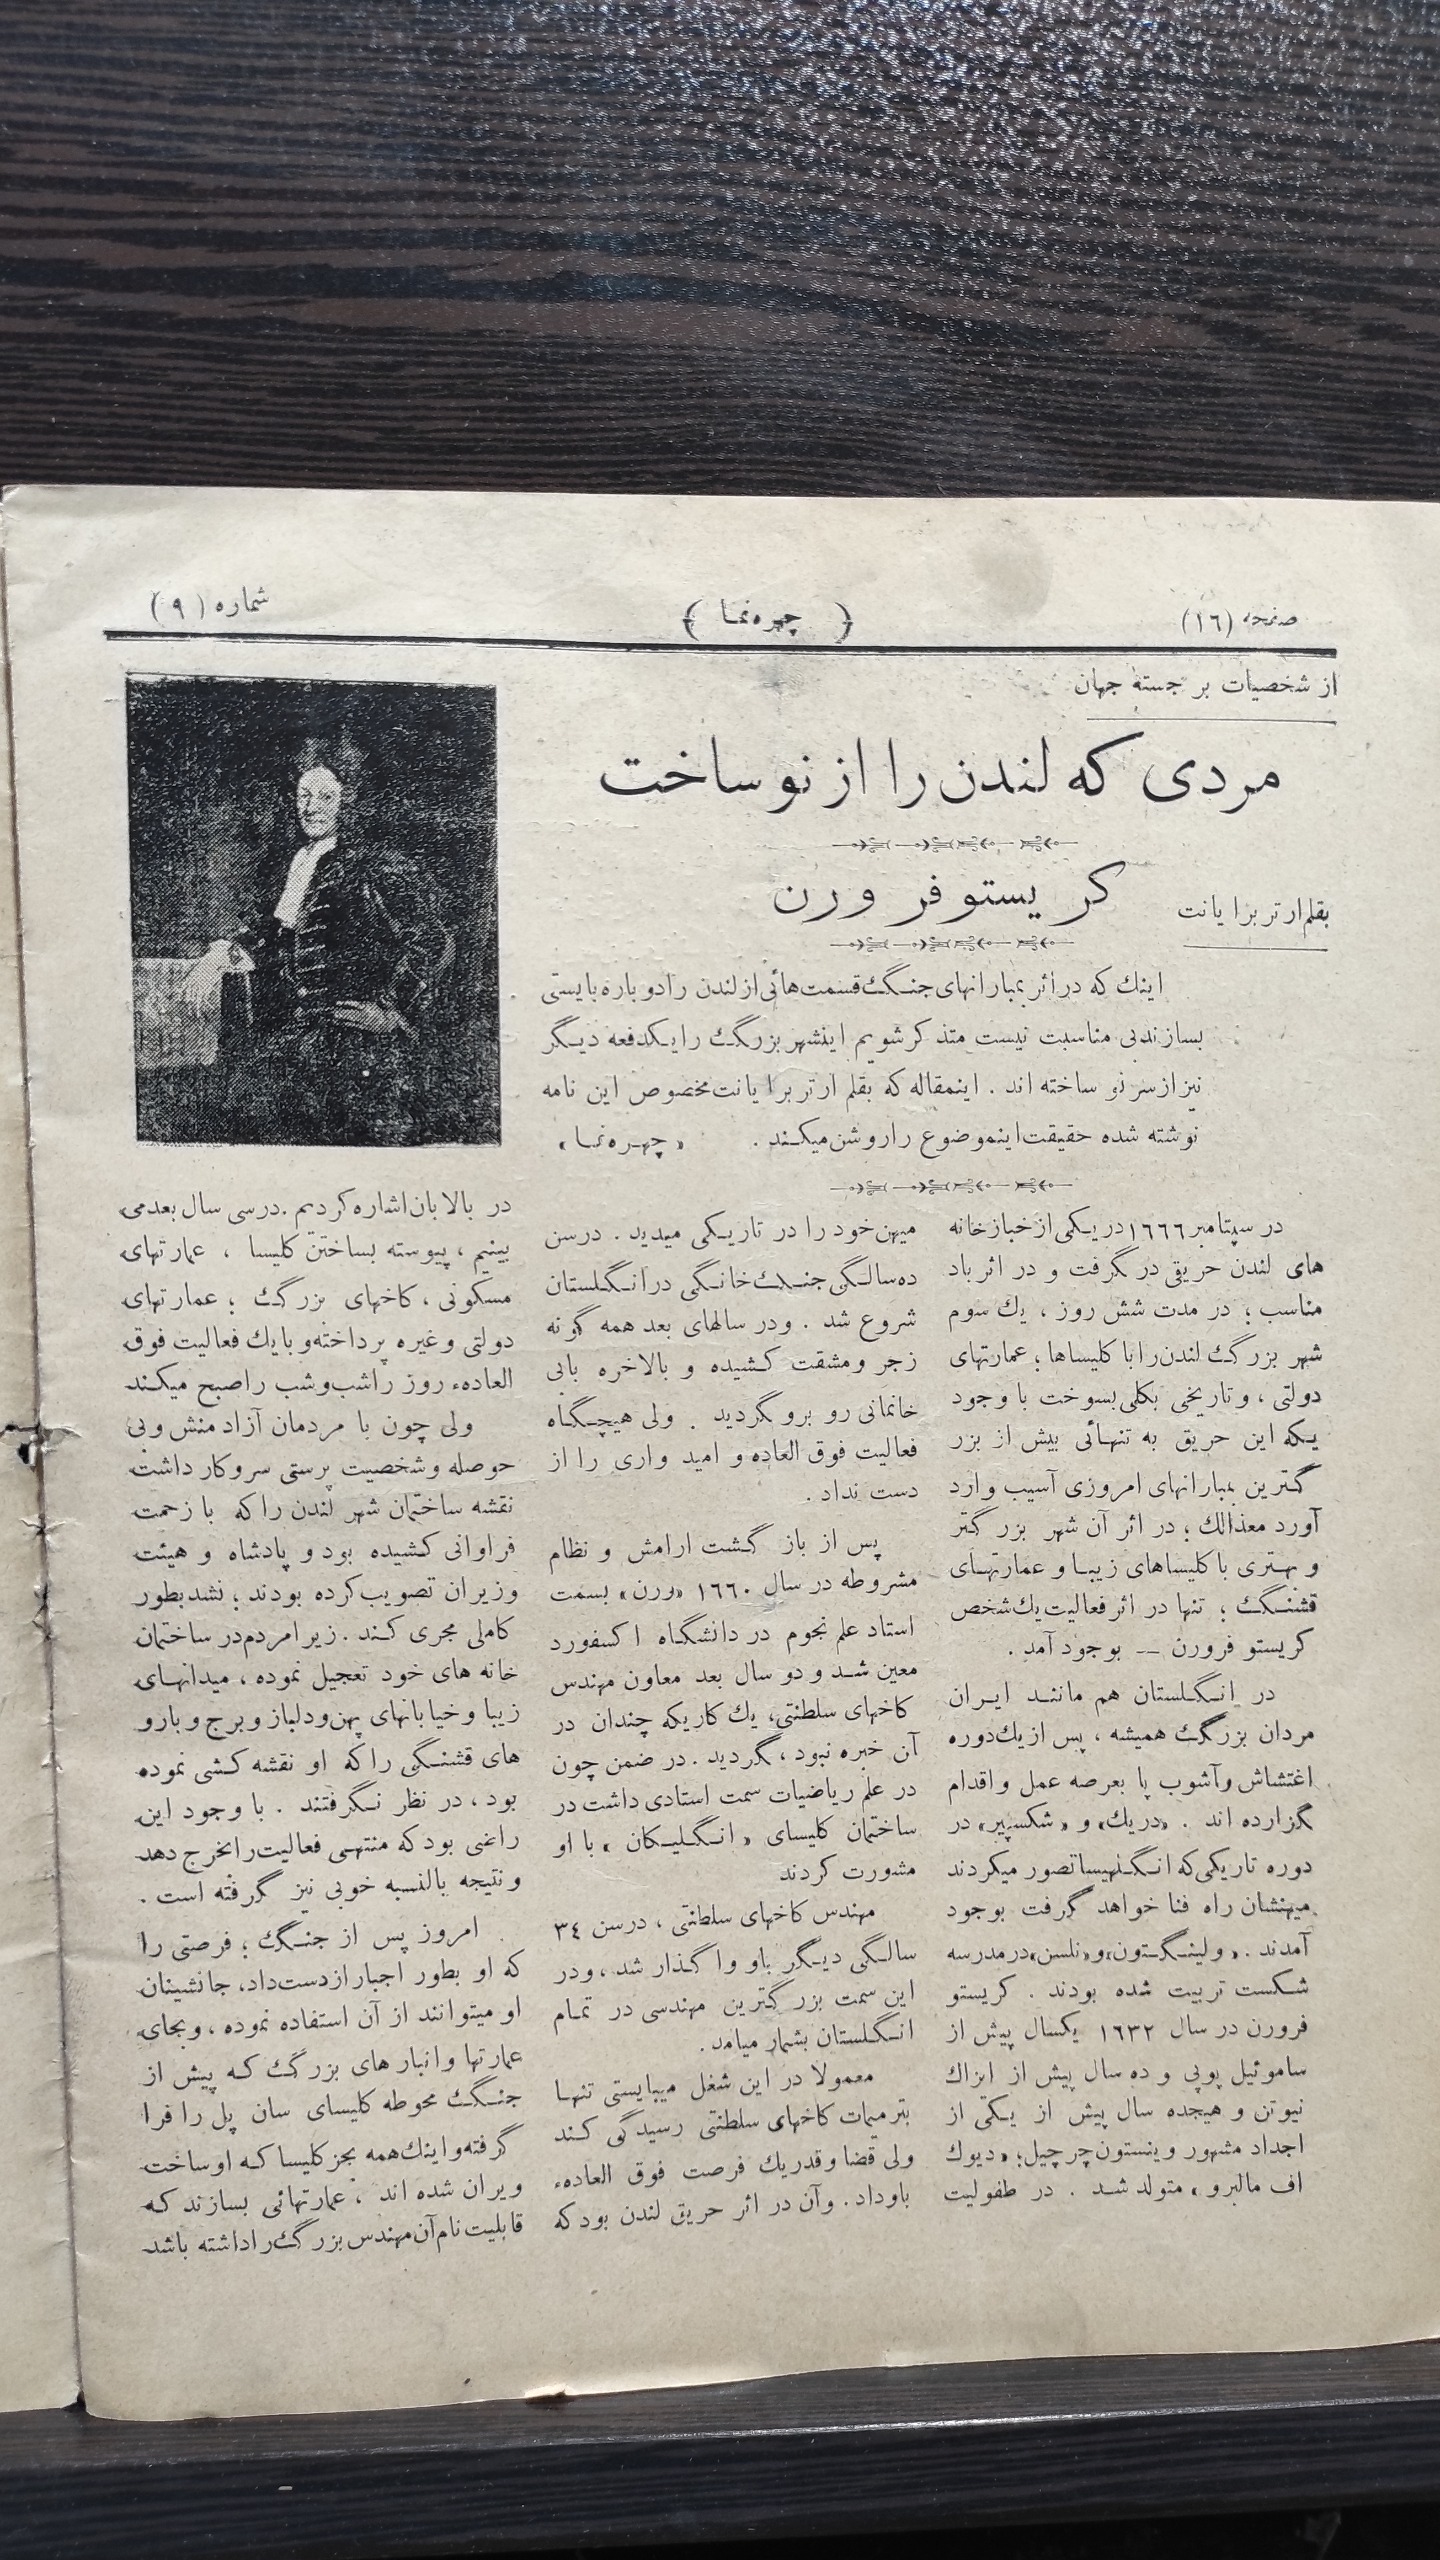 صفحه (١٦)
﴿ چهره‌نما ﴾
شماره (٩)
از شخصیات بر جسته جهان
مردی که لندن را از نو ساخت
کریستوفر ورن
بقلم ارتر برا یانت
اینك که در اثر بمبارانهای جنگ قسمت‌هائی از لندن را دوباره بایستی
بسازند بی مناسبت نیست متذکر شویم اینشهر بزرگ را یکدفعه دیگر
نیز از سر نو ساخته اند . اینمقاله که بقلم ارتر برا یانت مخصوص این نامه
نوشته شده حقیقت اینموضوع را روشن میکند . « چهره‌نما »
در سپتامبر ١٦٦٦ در یکی از خباز خانه
های لندن حریقی در گرفت و در اثر باد
مناسب ؛ در مدت شش روز ، یك سوم
شهر بزرگ لندن را با کلیساها ؛ عمارتهای
دولتی ، و تاریخی بکلی بسوخت با وجود
یکه این حریق به تنهائی بیش از بزر
گترین بمبارانهای امروزی آسیب وارد
آورد معذالك ؛ در اثر آن شهر بزر گتر
و بهتری با کلیساهای زیبا و عمارتهای
قشنگ ؛ تنها در اثر فعالیت یك شخص
کریستو فرورن — بوجود آمد .
در انگلستان هم مانند ایران
مردان بزرگ همیشه ، پس از یك دوره
اغتشاش و آشوب پا بعرصه عمل و اقدام
گزارده اند . «دریك» و «شکسپیر» در
دوره تاریکی که انگلیسها تصور میکردند
میهنشان راه فنا خواهد گرفت بوجود
آمدند . «ولینگتون» و «نلسن» در مدرسه
شکست تربیت شده بودند . کریستو
فرورن در سال ١٦٣٢ یکسال پیش از
ساموئیل پوپی و ده سال پیش از ایزاك
نیوتن و هیجده سال پیش از یکی از
اجداد مشهور وینستون چرچیل ؛ «دیوك
اف مالبرو» متولد شد . در طفولیت
میهن خود را در تاریکی میدید . در سن
ده سالگی جنگ خانگی در انگلستان
شروع شد . و در سالهای بعد همه گونه
زجر و مشقت کشیده و بالاخره بابی
خانمانی رو برو گردید . ولی هیچگاه
فعالیت فوق العاده و امید واری را از
دست نداد .
پس از باز گشت ارامش و نظام
مشروطه در سال ١٦٦٠ «ورن» بسمت
استاد علم نجوم در دانشگاه اکسفورد
معین شد و دو سال بعد معاون مهندس
کاخهای سلطنتی ، یك کاریکه چندان در
آن خبره نبود ، گردید . در ضمن چون
در علم ریاضیات سمت استادی داشت در
ساختمان کلیسای « انگلیکان » با او
مشورت کردند
مهندس کاخهای سلطنتی ، در سن ٣٤
سالگی دیگر باو واگذار شد ، و در
این سمت بزر گترین مهندسی در تمام
انگلستان بشمار میامد .
معمولا در این شغل میبایستی تنها
بترمیمات کاخهای سلطنتی رسیدگی کند
ولی قضا و قدر یك فرصت فوق العاده‌ء
باو داد . و آن در اثر حریق لندن بود که
در بالا بان اشاره کردیم . در سی سال بعد می
بینیم ، پیوسته بساختن کلیسا ، عمارتهای
مسکونی ، کاخهای بزرگ ؛ عمارتهای
دولتی و غیره پرداخته و با یك فعالیت فوق
العاده‌ء روز را شب و شب را صبح میکند
ولی چون با مردمان آزاد منش و بی
حوصله و شخصیت پرستی سروکار داشت
نقشه ساختمان شهر لندن را که با زحمت
فراوانی کشیده بود و پادشاه و هیئت
وزیران تصویب کرده بودند ؛ نشد بطور
کاملی مجری کند . زیرا مردم در ساختمان
خانه های خود تعجیل نموده ، میدانهای
زیبا و خیابانهای پهن و دلباز و برج و بارو
های قشنگی را که او نقشه کشی نموده
بود ، در نظر نگرفتند . با وجود این
راضی بود که منتهی فعالیت را بخرج دهد
و نتیجه بالنسبه خوبی نیز گرفته است .
امروز پس از جنگ ؛ فرصتی را
که او بطور اجبار از دست داد ، جانشینان
او میتوانند از آن استفاده نموده ، و بجای
عمارتها و انبار های بزرگ که پیش از
جنگ محوطه کلیسای سان پل را فرا
گرفته و اینك همه بجز کلیسا که او ساخت
ویران شده اند ، عمارتهائی بسازند که
قابلیت نام آن مهندس بزرگ را داشته باشد